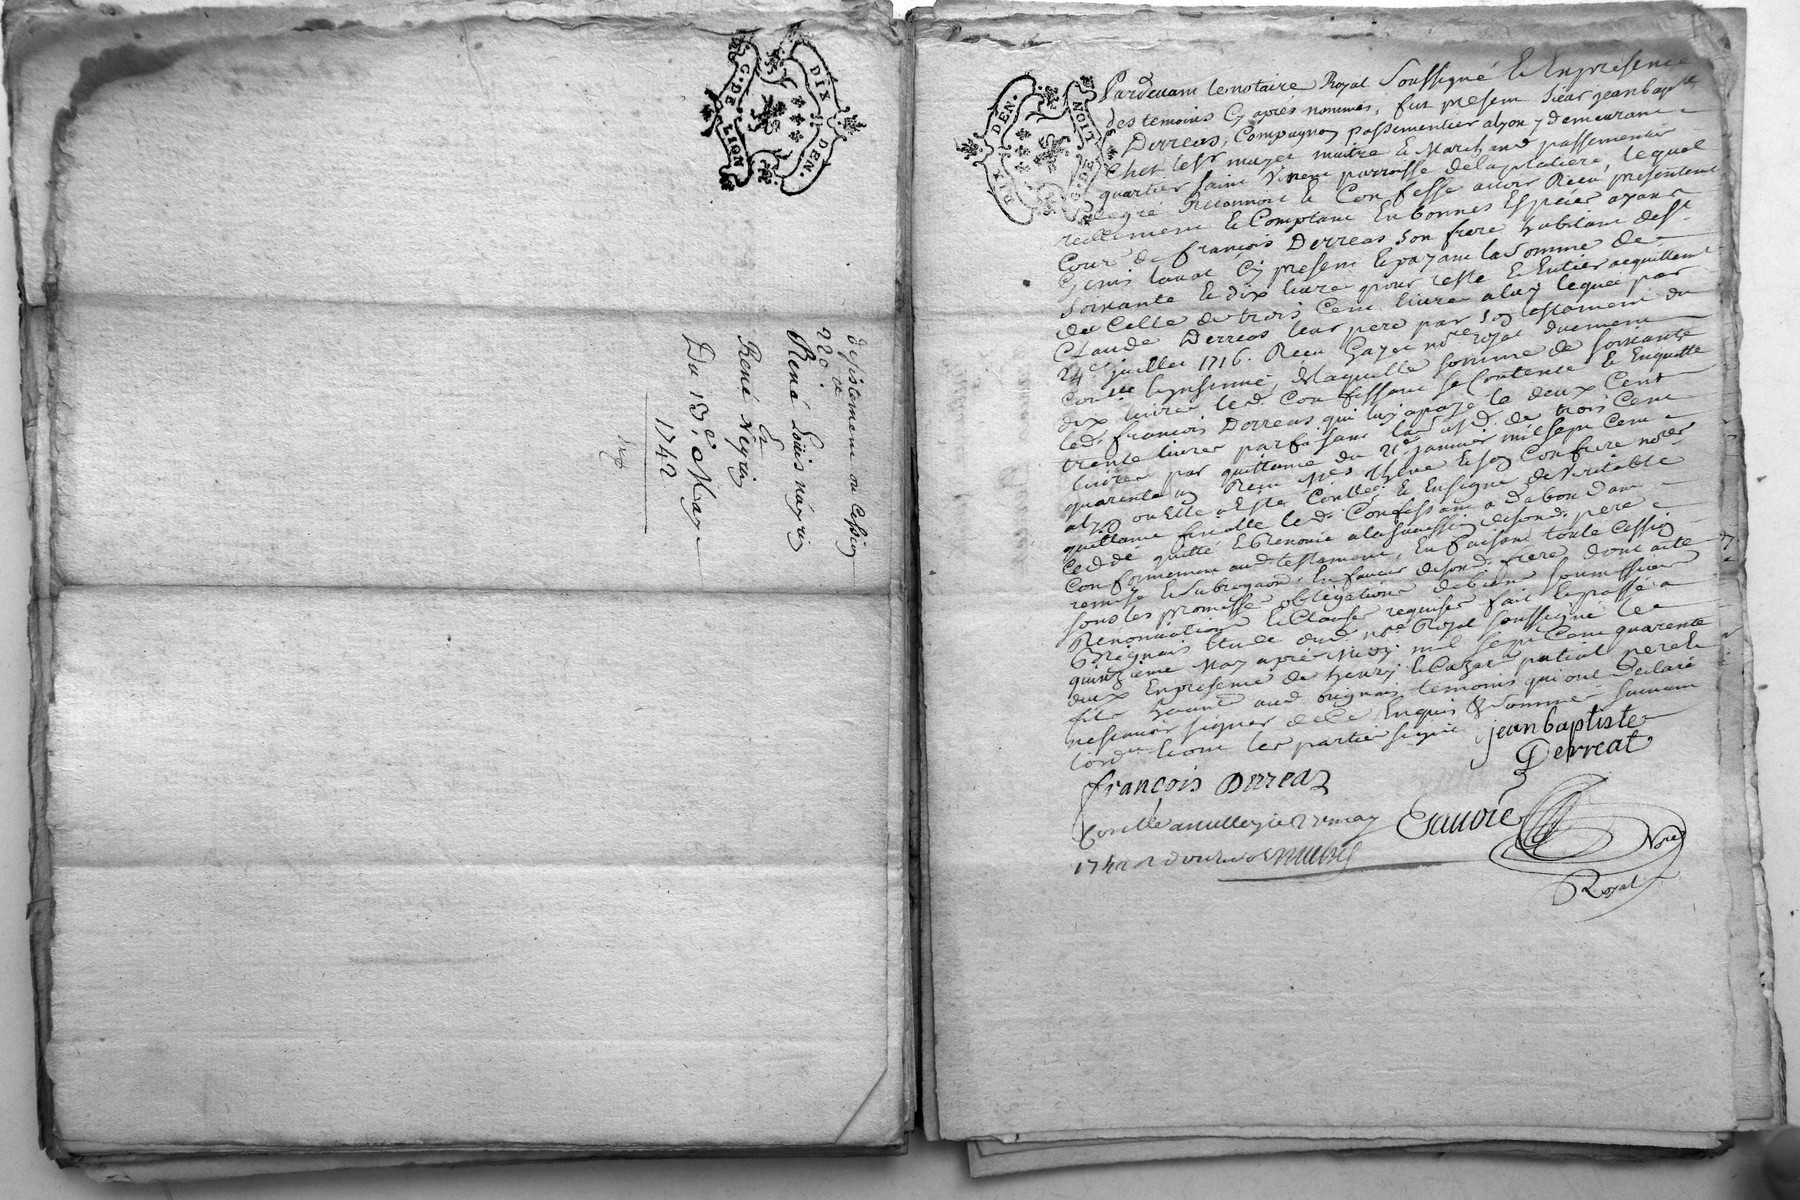 G. DE LION
DIX DEN.
desistement ou Cession
220 #
René Louis néyrin
Et
René Neyrin
Du 13e May
1742
DIX DEN.
G. DE LION
Pardevant le notaire Royal Soussigné Et Enpresence
des temoins Cy apres nommés, fut present Sieur jean bapte
Derreas, Compagnon passementier alyon y demeurant
Chez le Sr muzet maitre Et Marchand passementier
quartier saint Vincent parroisse de la platiere, lequel
degré Reconnoit Et Confesse avoir Receu presentement
reellement Et Comptant En bonnes Especes ayant
Cour de françois Derreas son frere habitant de St
Genis laval Cy present Et payant la Somme de
Soixante Et dix livres pour reste Et Entier acquittement
de Celle de trois Cent livres a luy leguée par
Claude Derreas leur pere par son testament du
24e juillet 1716. Receu Gayet nore royal duement
Con.llé Et insinué, de laquelle somme de soixante
dix livres led. Confessant se Contente Et En quitte
led. françois Derreas qui luy a payé le deux Cent
trente livres parfaisant lad. de trois Cent
livres par quittance du 21e janvier mil sept Cent
quarante un Receu Mes Thève Et son Confrere nores
alyon ou Elle a Esté Conllée, Et En Signe de Veritable
quittance finalle led. Confessant a dabondant
Ceddé quitté Et Renoncé a la succession de sond. pere
Conformement aud. testament, En faisant toute Cession
remise Et subrogaon. En faveur de sond. frere, dont acte
sous les promesses obligations de biens soumissions
Renonciations Et Clauses requises fait Et passé a
Brignais Etude dud. nore Royal soussigné le
quinzieme May après Midy mil sept Cent quarante
deux En presence de henry Et Cazot patial pere Et
fils habitants aud. brignais temoins qui ont declaré
ne scavoir signer de Ce Enquis Et sommés suivant
lord.ce Et ont les parties signé
jean baptiste
Derreat
françois Derreas
Conllé a vulley le 27 may
1742 R douze sols
Gauvie
Nore
Royal